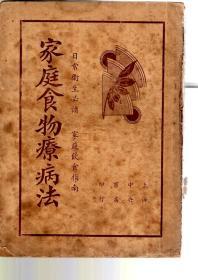 家庭食物療病法
日常衛生必讀 家庭飲食指南
上海
中西書局
印行